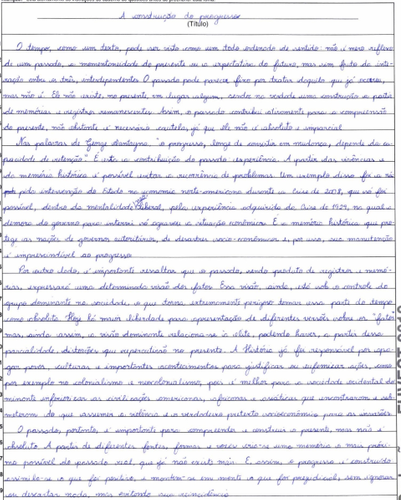 A construção do progresso
(Título)
O tempo, como um texto, pode ser visto como um todo ordenado de sentido: não é mero reflexo
de um passado, a momentaneidade do presente ou a expectativa do futuro, mas sim fruto da inte-
ração entre os três, interdependentes. O passado pode parecer fixo por tratar daquilo que já ocorreu,
mas não é. Ele não existe, no presente, em lugar algum, sendo na verdade uma construção a partir
de memórias e registros remanescentes. Assim, o passado contribui ativamente para a compreensão
do presente, não obstante é necessária cautela, já que ele não é absoluto e imparcial.
Nas palavras de George Santayna "o progresso, longe de consistir em mudança, depende da ca-
pacidade de retenção". É esta a contribuição do passado: experiência. A partir das vivências e
da memória histórica é possível evitar a recorrência de problemas. Um exemplo disso foi a rá-
pida intervenção do Estado na economia norte-americana durante a Crise de 2008, que só foi
possível, dentro da mentalidade liberal, pela experiência adquirida da Crise de 1929, na qual a
demora do governo para intervir só agravou a situação econômica. É a memória histórica que pro-
tege as nações de governos autoritários, de desastres socio-econômicos e, por isso, sua manutenção
é imprescindível ao progresso.
Por outro lado, é importante ressaltar que o passado, sendo produto de registros e memó-
rias, expressará uma determinada visão dos fatos. Essa visão, ainda, está sob o controle do
grupo dominante na sociedade, o que torna extremamente perigoso tomar essa parte do tempo
como absoluta. Hoje há maior liberdade para apresentação de diferentes versões sobre os "fatos"
mas, ainda assim, a visão dominante relaciona-se à elite, podendo haver, a partir dessa
parcialidade, distorções que repercutirão no presente. A História já foi responsável por apa-
gar povos, culturas e importantes acontecimentos para justificar ou eufemizar ações, como
por exemplo no colonialismo e neocolonialismo, pois é melhor para a sociedade ocidental do-
minante inferiorizar as civilizações americanas, africanas e asiáticas que encontraram e sub-
meteram do que assumir a violência e o verdadeiro pretexto socioeconômico para as invasões.
O passado, portanto, é importante para compreender e construir o presente, mas não é
absoluto. A partir de diferentes fontes, formas e vozes cria-se uma memória o mais próxi-
mo possível do passado real, que já não existe mais. E assim, o progresso é construído:
assimila-se o que foi positivo, e mantém-se em mente o que foi prejudicial, sem ignorar
ou descartar nada, mas evitando sua reincidência.